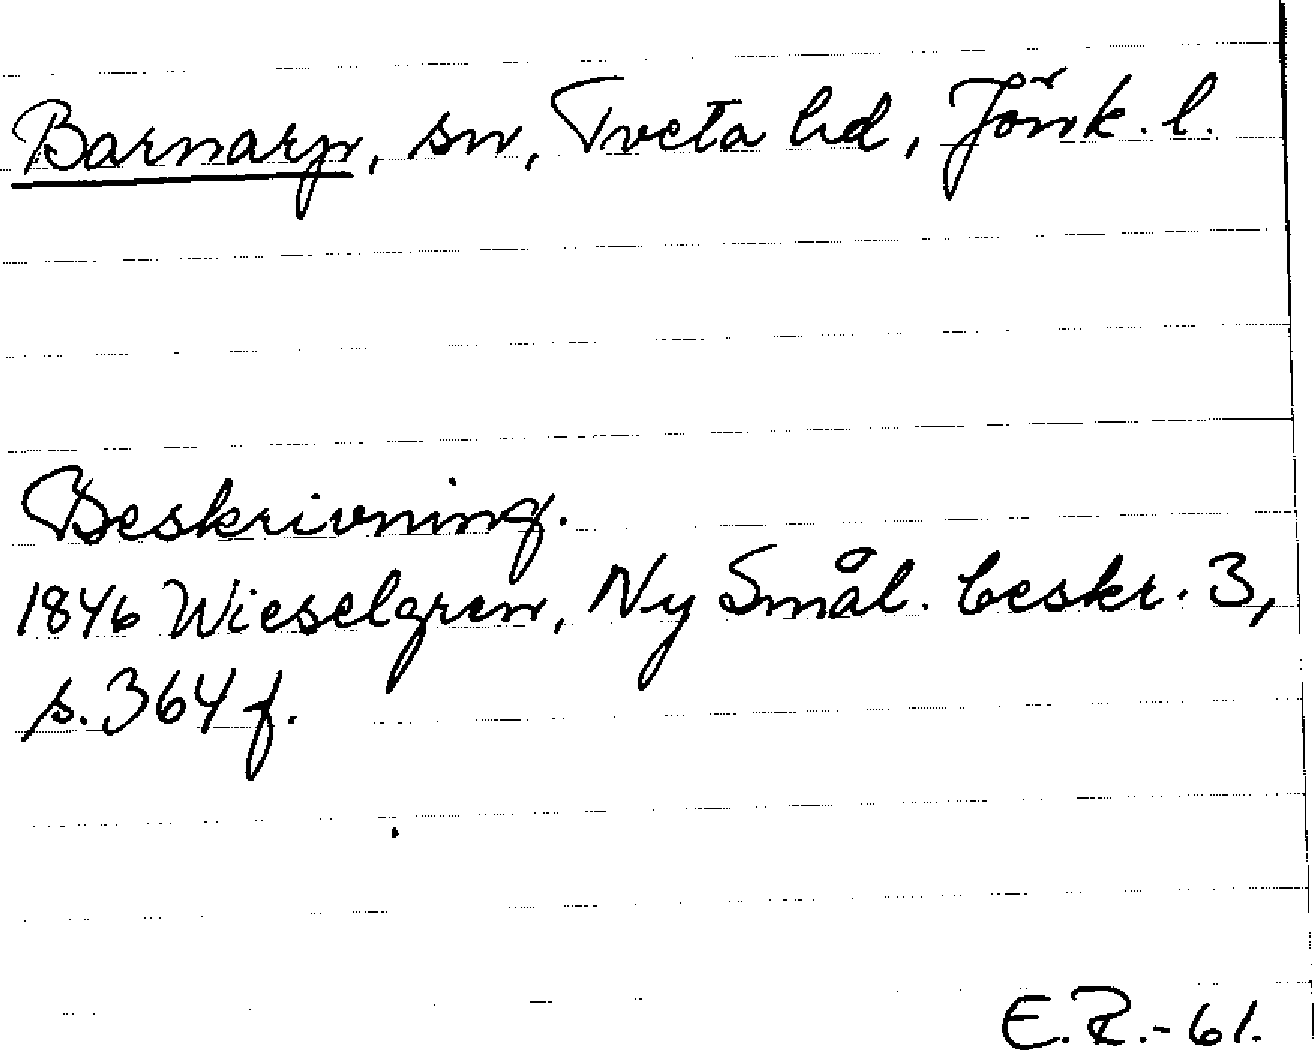 Barnarp, sn, Tveta hd, Jönk. l.
Beskrivning.
1846 Wieselgren, Ny Smål. beskr. 3,
s. 364 f.
E.R.-61.